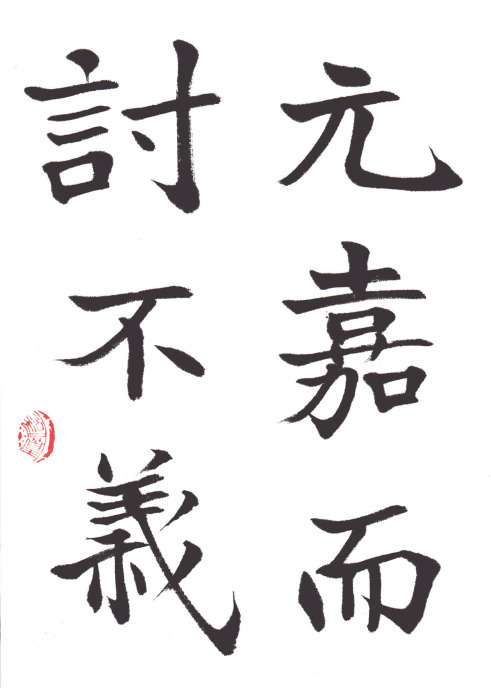 元嘉而
討不義